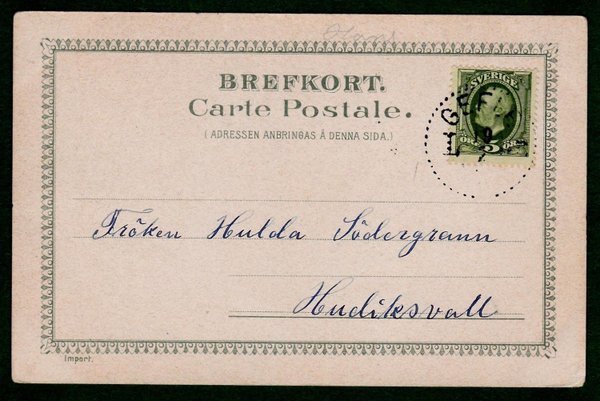 BREFKORT.
Carte Postale.
( ADRESSEN ANBRINGAS Å DENNA SIDA.)
SVERIGE
GEFLE
ÖRE 5 ÖRE
Fröken Hulda Södergrann
Hudiksvall
Import.